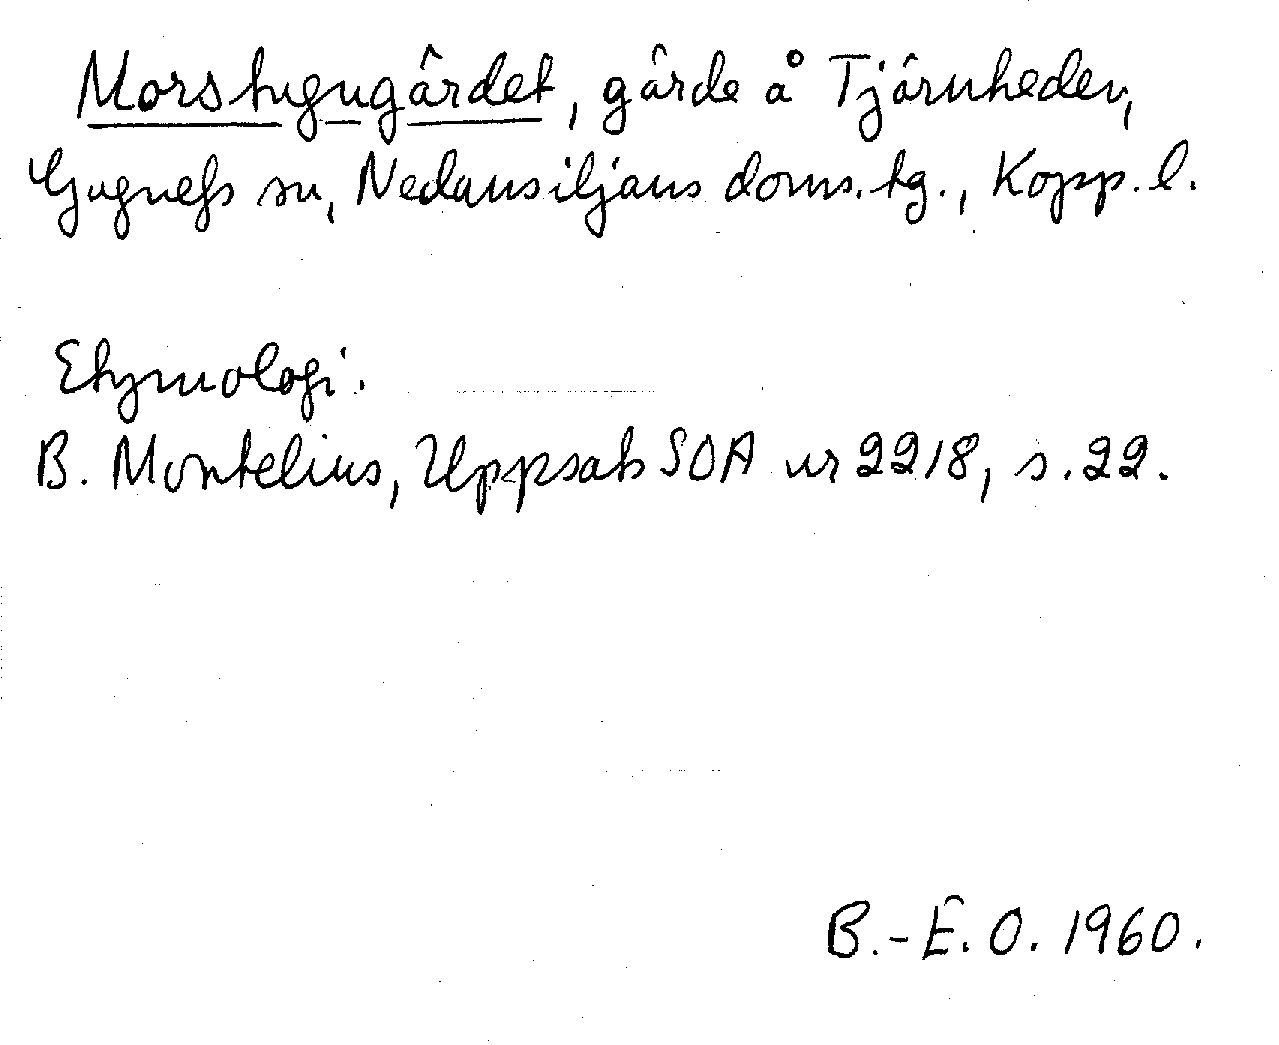 Morstugugärdet, gärde å Tjärnheden,
Gagnefs sn, Nedansiljans doms. tg., Kopp. l.
Etymologi.
B. Montelius, Uppsats SOA nr 2218, s. 22.
B.-E. O. 1960.